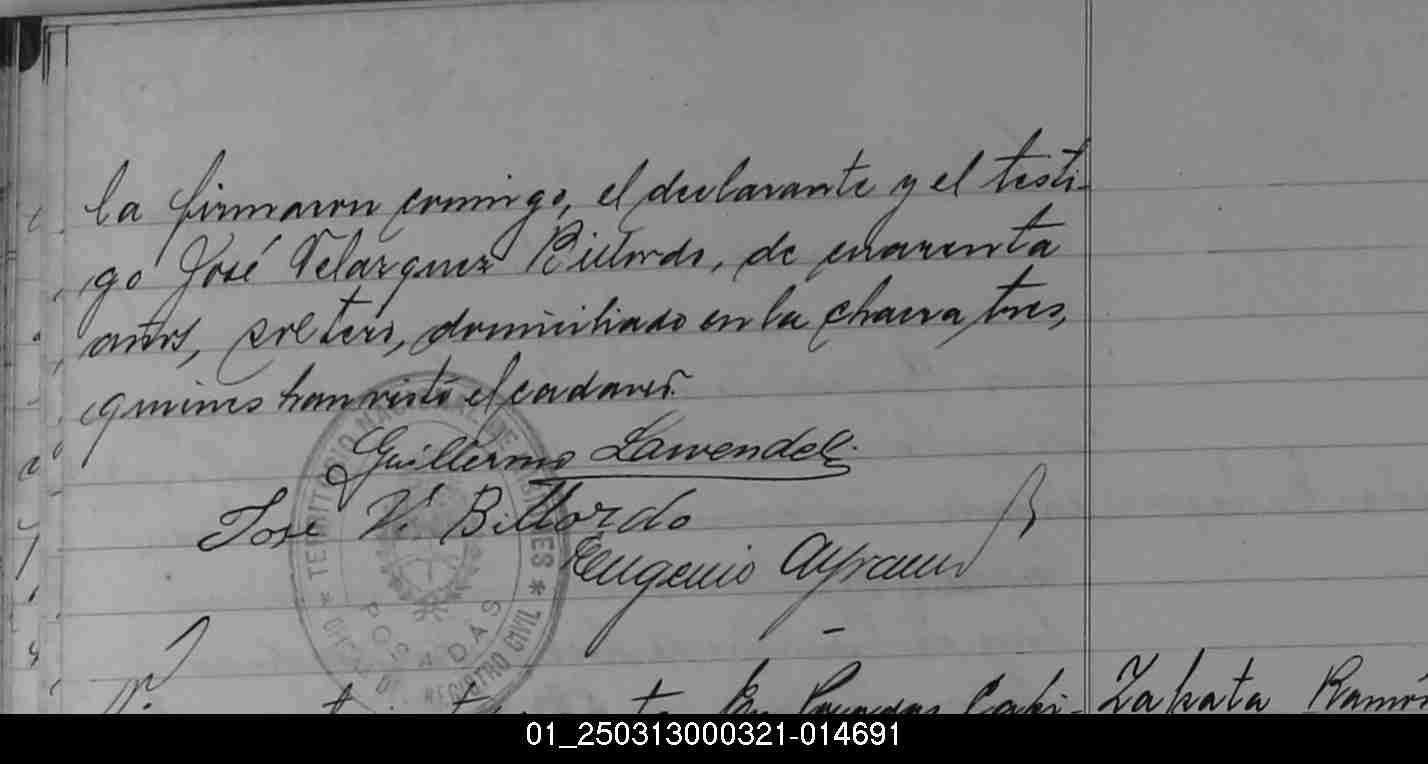 la firmaron comigo, el declarante y el testi-
go José Velazquez Billordo, de cuarenta
años, soltero, domiciliado en la chacra tres,
quienes han visto el cadaver.
Guillermo Lawendel
José V. Billordo
Eugenio
TERRITORIO NACIONAL DE MISIONES
POSADAS
OFICINA DEL REGISTRO CIVIL
En Posadas Capi- Zapata Ramón
01_250313000321-014691